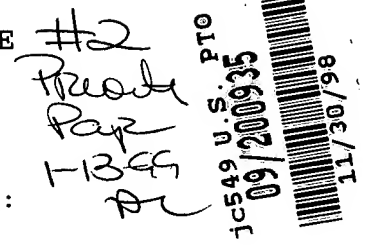 E #2
Priority
Pap
1-13-99
:
jc549 U.S. PTO
09/200935
11/30/98